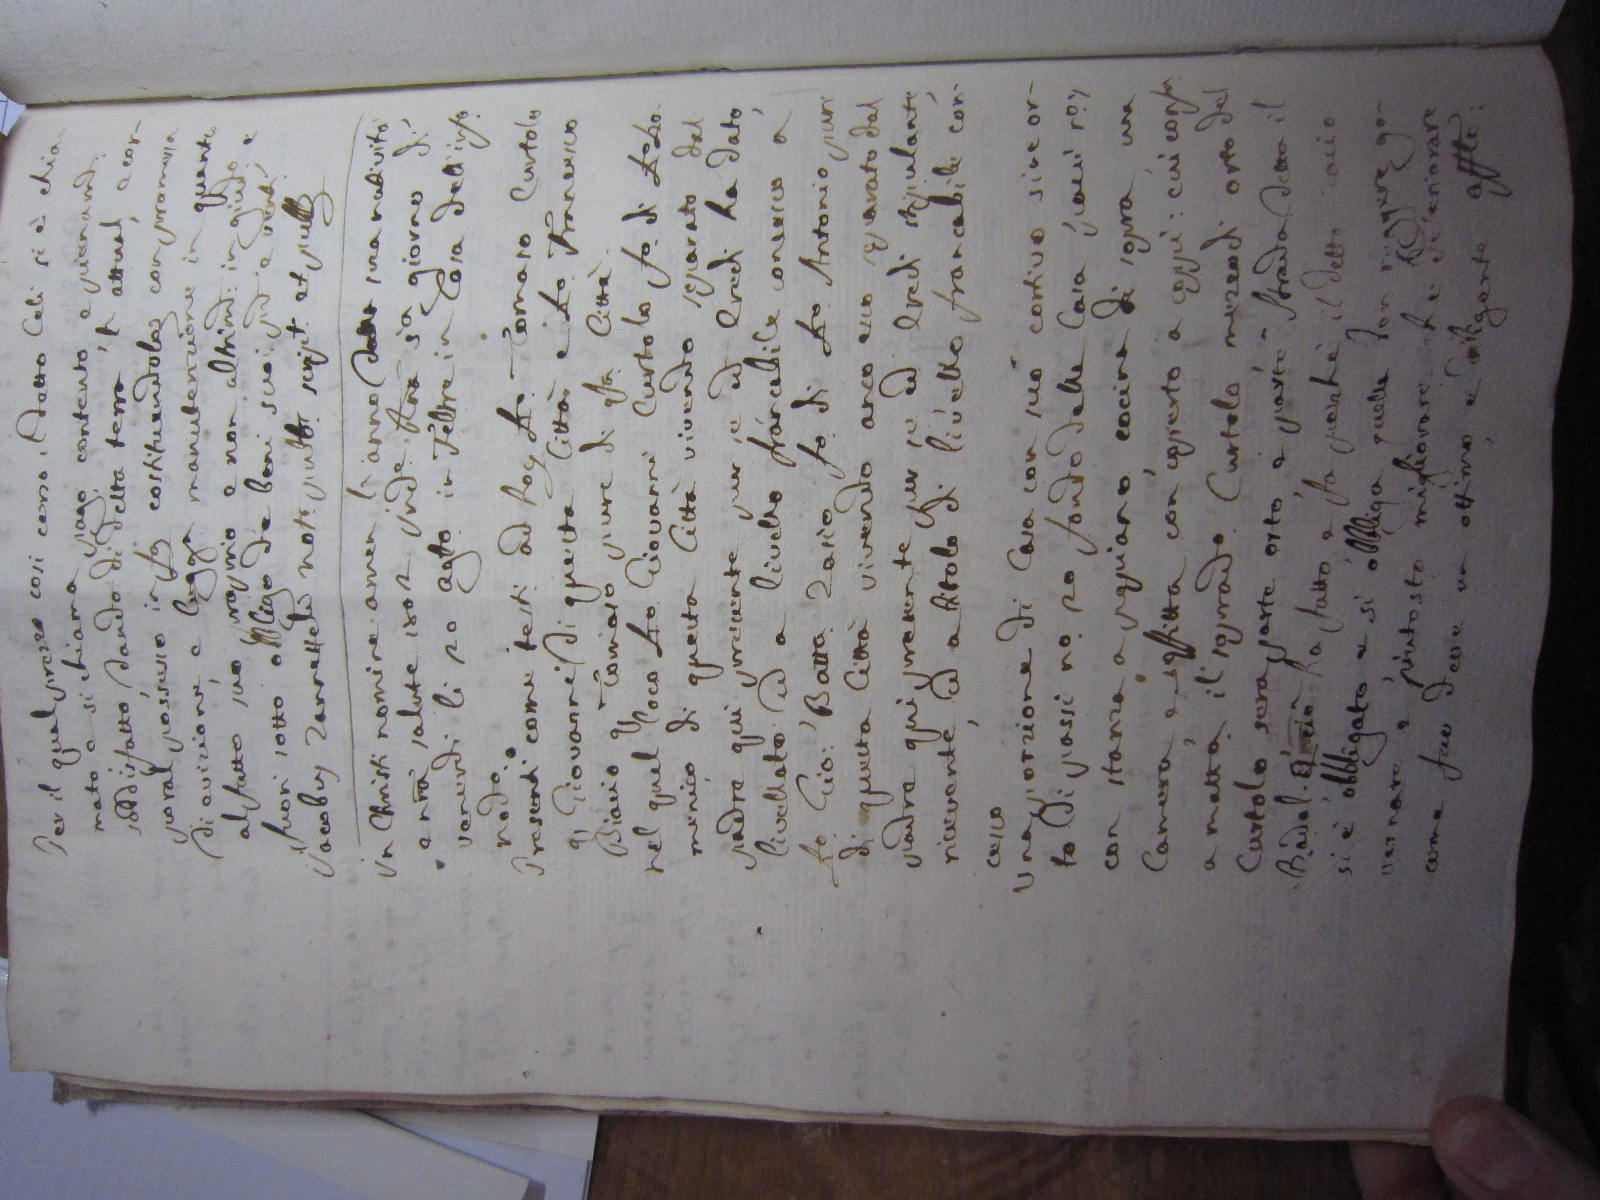 Per il qual prezzo così corso, datto Celi si è chia-
mato e si chiama pago contento e quietand:
soddisfatto dando di detta terra p attual, e cor-
poral possesso in fo constituendolo con promessa
di avizione e legga manutenzione in quanto
al fatto suo proprio e non altrim: in giudo e
fuori sotto obbligo de beni suoi pnti e vent: e
Jacobus Zannettelli nots
In Christi nomine amen l'anno sua natività
e nrã salute 1802 Indẽ sia giorno di
venerdi li 20 agto in Feltre in Casa dell' info
nodo.
Presenti come testi ad Rog Tomaso Curtolo
q Giovanni di questa Città e Francesco
Biasio q Tomaso pure di qta Città.
nel qual loco Giovanni Curtolo fo di
menico di questa Città vivendo separato dal
padre qui presente per se ed Eredi ha dato
livellato ed a livello francabile concesso a
Gio: Batta Zasio fo di Antonio pur
di questa Città vivendo anco esso separato dal
padre qui presente per se ed Eredi stipulante
ricevente ed a titolo di livello francabile con-
cesso
Una porzione di Casa con suo cortivo sive or-
to di passi no 20 fondo della Casa passi no
con stanza a repiano cocina di sopra una
Camera, e soffitta con coperto a coppi: cui confa
a mattina il soprado Curtolo mezzodi orto del
Curtolo sera parte orto e parte Strada detto il
ha fatto e fa perchè il detto Zasio
si è obbligato e si obbliga quelle ben reggere go-
vernare e piutosto migliorare che deteriorare
come far deve un ottimo e diligente afftle: